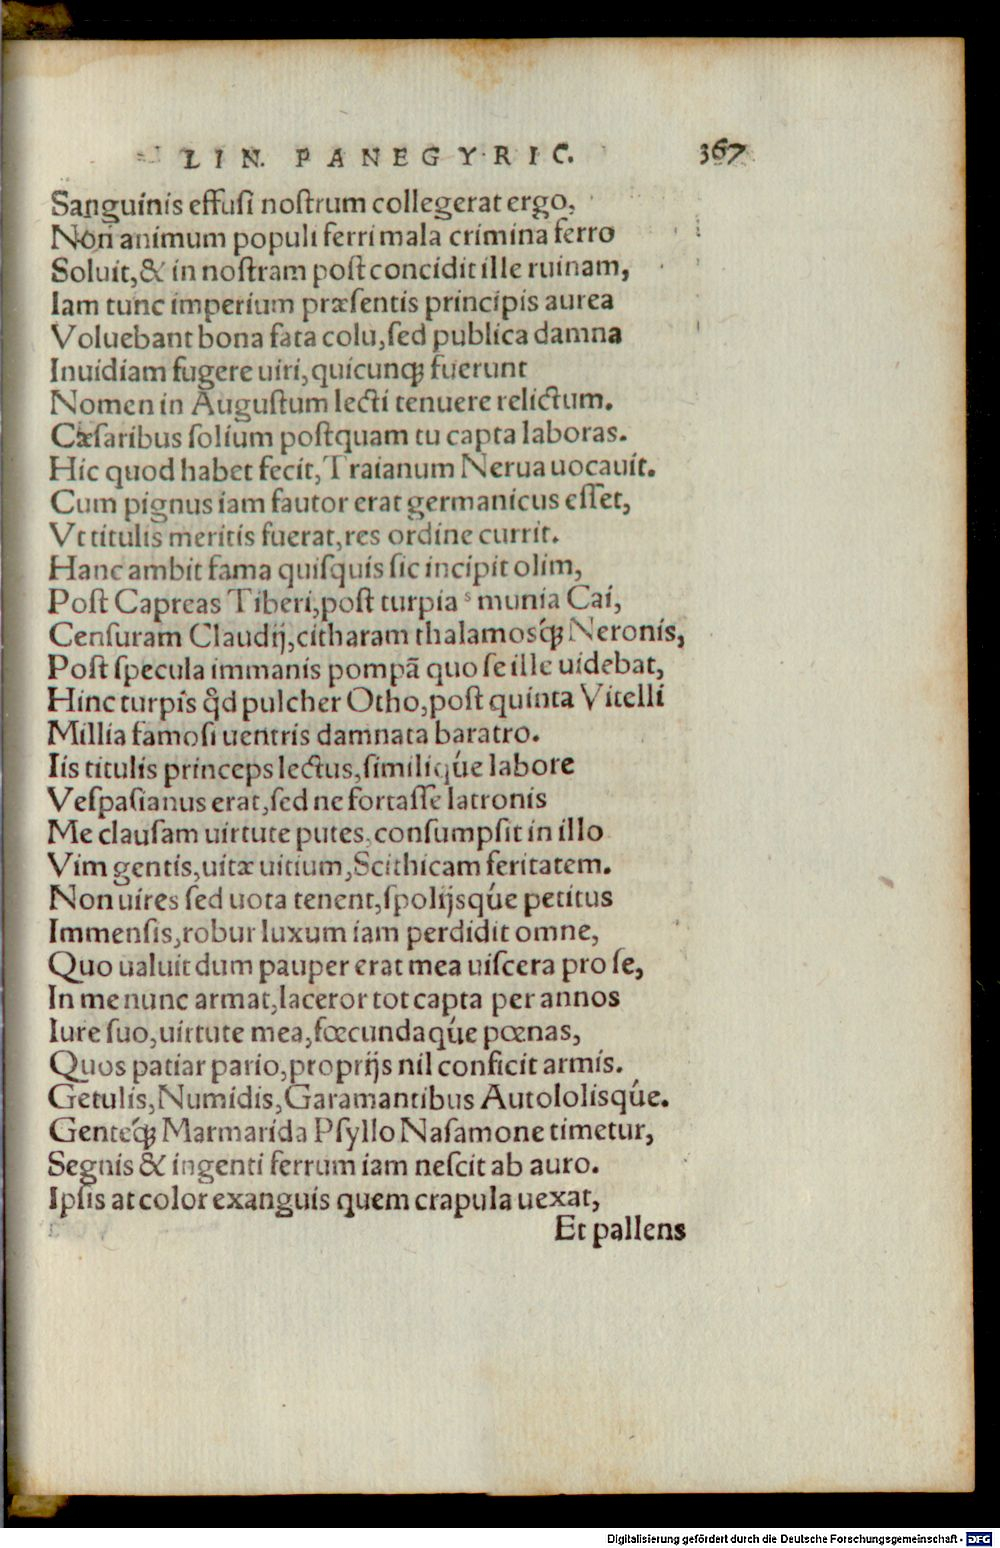 LIN. PANEGYRIC. 367
Sanguinis effusi nostrum collegerat ergo,
Non animum populi ferri mala crimina ferro
Soluit, & in nostram post concidit ille ruinam,
Iam tunc imperium præsentis principis aurea
Voluebant bona fata colu, sed publica damna
Inuidiam fugere uiri, quicunqꝫ fuerunt
Nomen in Augustum lecti tenuere relictum.
Cæsaribus solium postquam tu capta laboras.
Hic quod habet fecit, Traianum Nerua uocauit.
Cum pignus iam fautor erat germanicus esset,
Vt titulis meritis fuerat, res ordine currit.
Hanc ambit fama quisquis sic incipit olim,
Post Capreas Tiberi, post turpia s munia Cai,
Censuram Claudij, citharam thalamosq́ꝫ Neronis,
Post specula immanis pompā quo se ille uidebat,
Hinc turpis qd̓ pulcher Otho, post quinta Vitelli
Millia famosi uentris damnata baratro.
Iis titulis princeps lectus, similiq́ue labore
Vespasianus erat, sed ne fortasse latronis
Me clausam uirtute putes, consumpsit in illo
Vim gentis, uitæ uitium, Scithicam feritatem.
Non uires sed uota tenent, spolijsq́ue petitus
Immensis, robur luxum iam perdidit omne,
Quo ualuit dum pauper erat mea uiscera pro se,
In me nunc armat, laceror tot capta per annos
Iure suo, uirtute mea, fœcundaq́ue pœnas,
Quos patiar pario, proprijs nil conficit armis.
Getulis, Numidis, Garamantibus Autololisq́ue.
Genteq́ꝫ Marmarida Psyllo Nasamone timetur,
Segnis & ingenti ferrum iam nescit ab auro.
Ipsis at color exanguis quem crapula uexat,
Et pallens
Digitalisierung gefördert durch die Deutsche Forschungsgemeinschaft - DFG